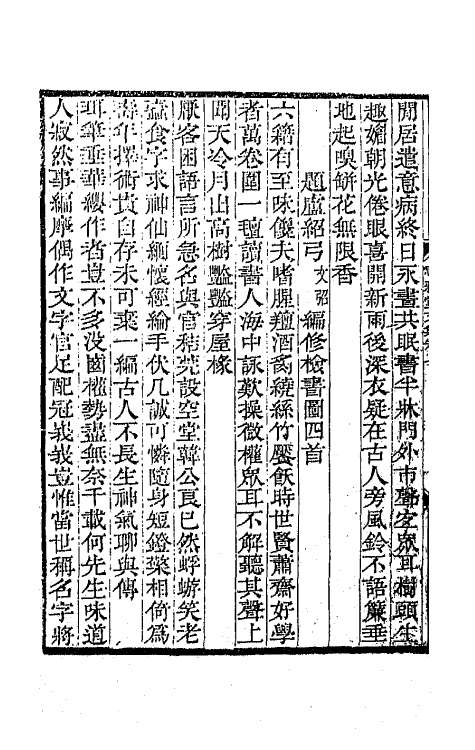 閒居遣意病終日永晝共眠書半牀門外市聲空眾耳樹頭生
趣媚朝光倦眼喜開新雨後深衣疑在古人旁風鈴不語簾垂
地起嗅餅花無限香
題盧紹弓文弨編修檢書圖四首
六籍有至味饞夫嗜腥羶酒肉繞絲竹饜飫時世賢蕭齋好學
者萬卷圍一氊讀書人海中詠歎操微權眾耳不解聽其聲上
聞天冷月山高樹豔豔穿屋椽
厭客困語言所急名與官秸莞設空堂韓公良已然蜉蝣笑老
蠹食字求神仙緬懷經綸手伏几誠可憐隨身短鐙檠相倚為
壽年擇術貴自存未可棄一編古人不長生神氣聊與傳
珥筆垂華纓作者豈不多沒齒權勢盡無奈千載何先生味道
人寂然事編摩偶作文字官足配冠峩峩豈惟當世稱名字將